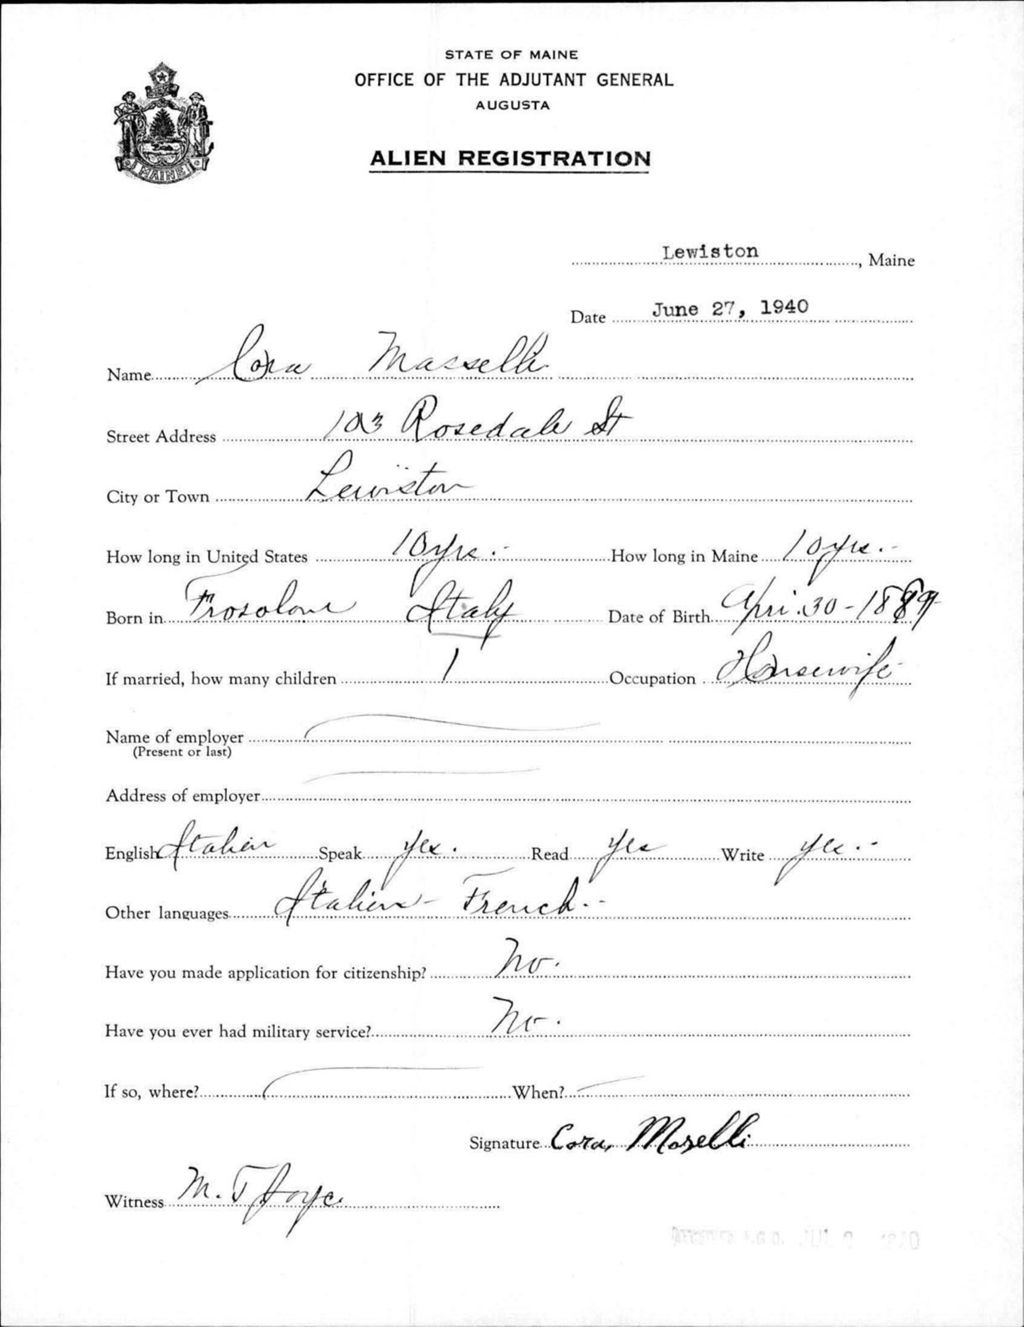 STATE OF MAINE
OFFICE OF THE ADJUTANT GENERAL
AUGUSTA
ALIEN REGISTRATION
MAINE
Lewiston, Maine
Date June 27, 1940
Name Cora Masselli
Street Address 103 Rosedale St
City or Town Lewiston
How long in United States 10 yrs. How long in Maine 10 yrs.
Born in Frosolone Italy Date of Birth Apri. 30 - 1889
If married, how many children 1 Occupation Housewife
Name of employer
(Present or last)
Address of employer
English Italian Speak yes. Read Yes Write yes.
Other languages Italian - French.
Have you made application for citizenship? No.
Have you ever had military service? No.
If so, where? When?
Signature Cora Moselli
Witness M. T. Joyce